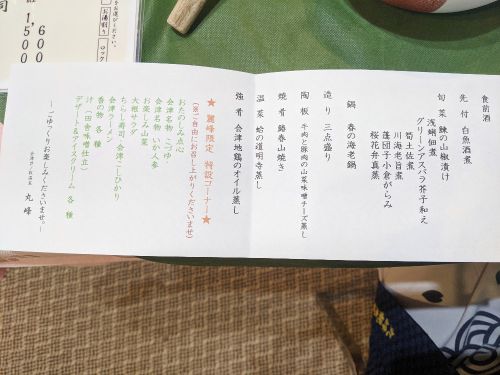 食前酒
先付 白魚酒煮
旬菜 鰊の山椒漬け
浅蜊佃煮
グリーンアスパラ芥子和え
筍土佐煮
川海老旨煮
蓬団子小倉がらみ
桜花弁真蒸
鍋 春の海老鍋
造り 三点盛り
陶板 牛肉と豚肉の山菜味噌チーズ蒸し
焼肴 鰆春山焼き
温菜 蛤の道明寺蒸し
強肴 会津地鶏のオイル蒸し
★麗峰限定 特設コーナー★
(※ご自由にお召し上がりくださいませ)
おたのしみ点心
会津名物 こづゆ
会津名物 いか人参
お楽しみ山菜
大根サラダ
ちらし寿司 会津こしひかり
会津ラーメン
香の物 各種
汁(田舎味噌仕立)
デザート&アイスクリーム 各種
~ごゆっくりお楽しみくださいませ。~
丸峰
司
600
1,500
お湯割り
ロック